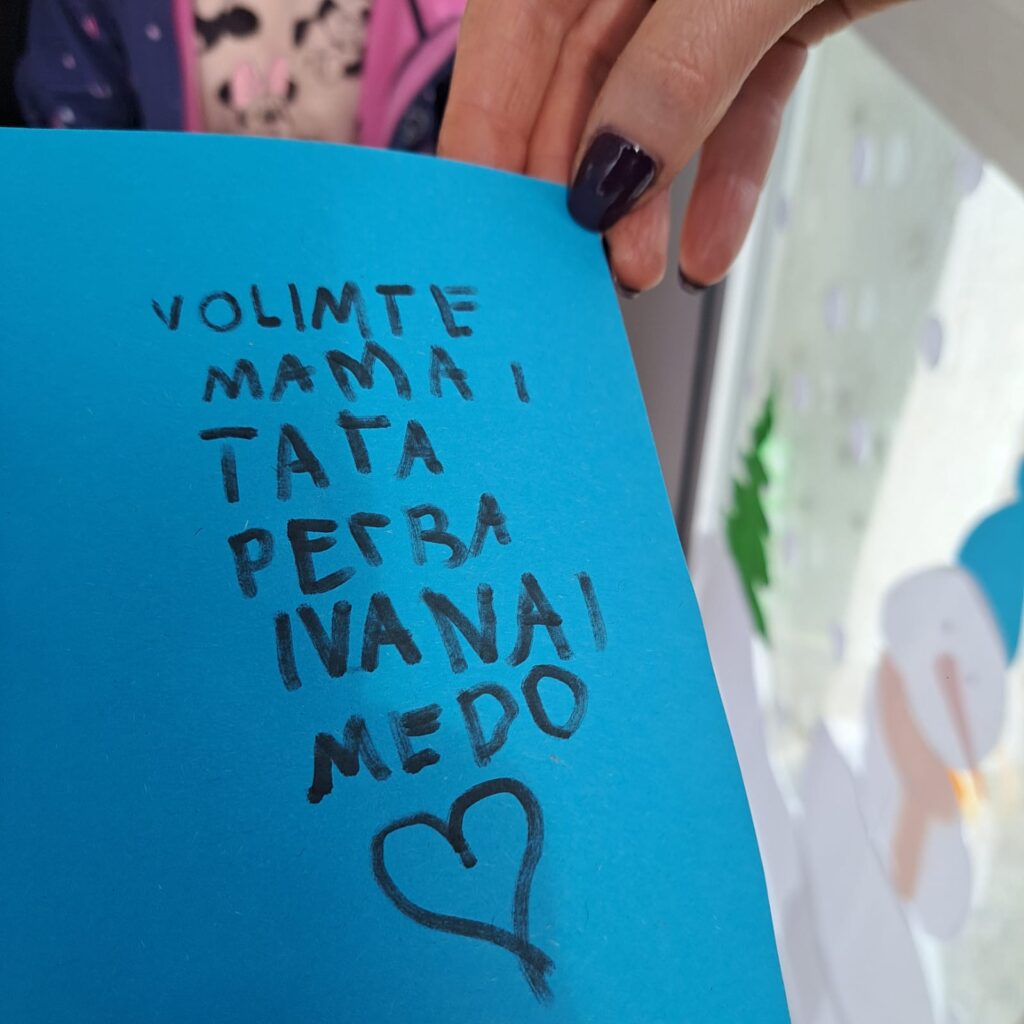 VOLIMTE
MAMA I
TATA
PETBA
IVANA I
MEDO